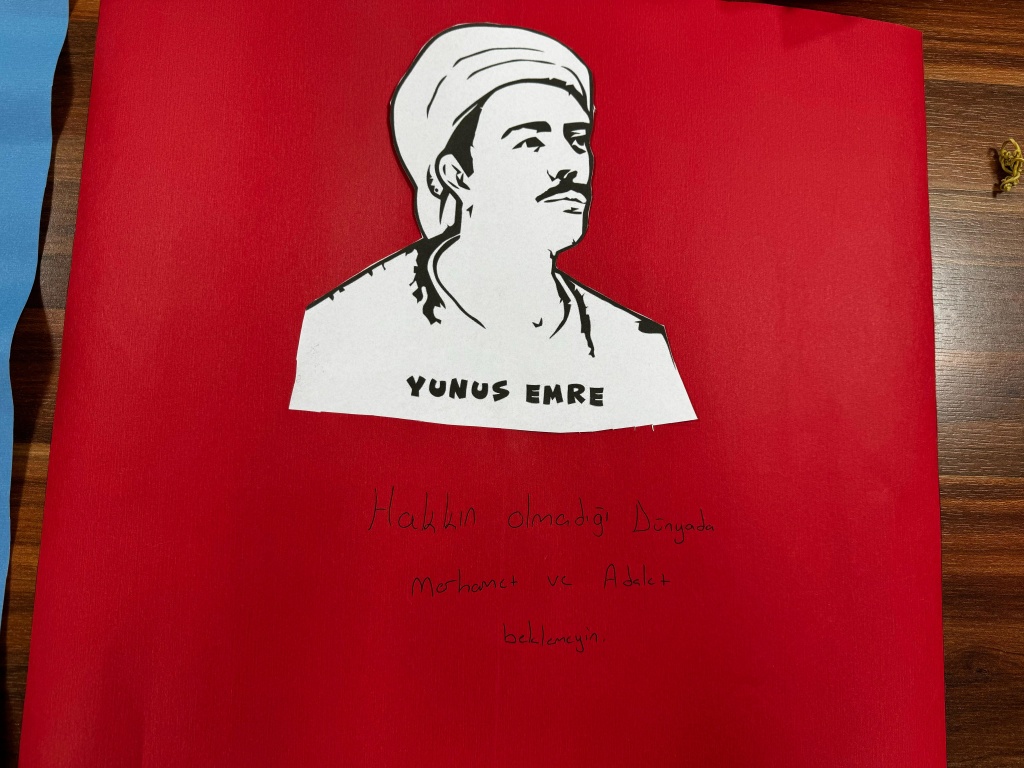 YUNUS EMRE
Hakkın olmadığı Dünyada
Merhamet ve Adalet
beklemeyin.